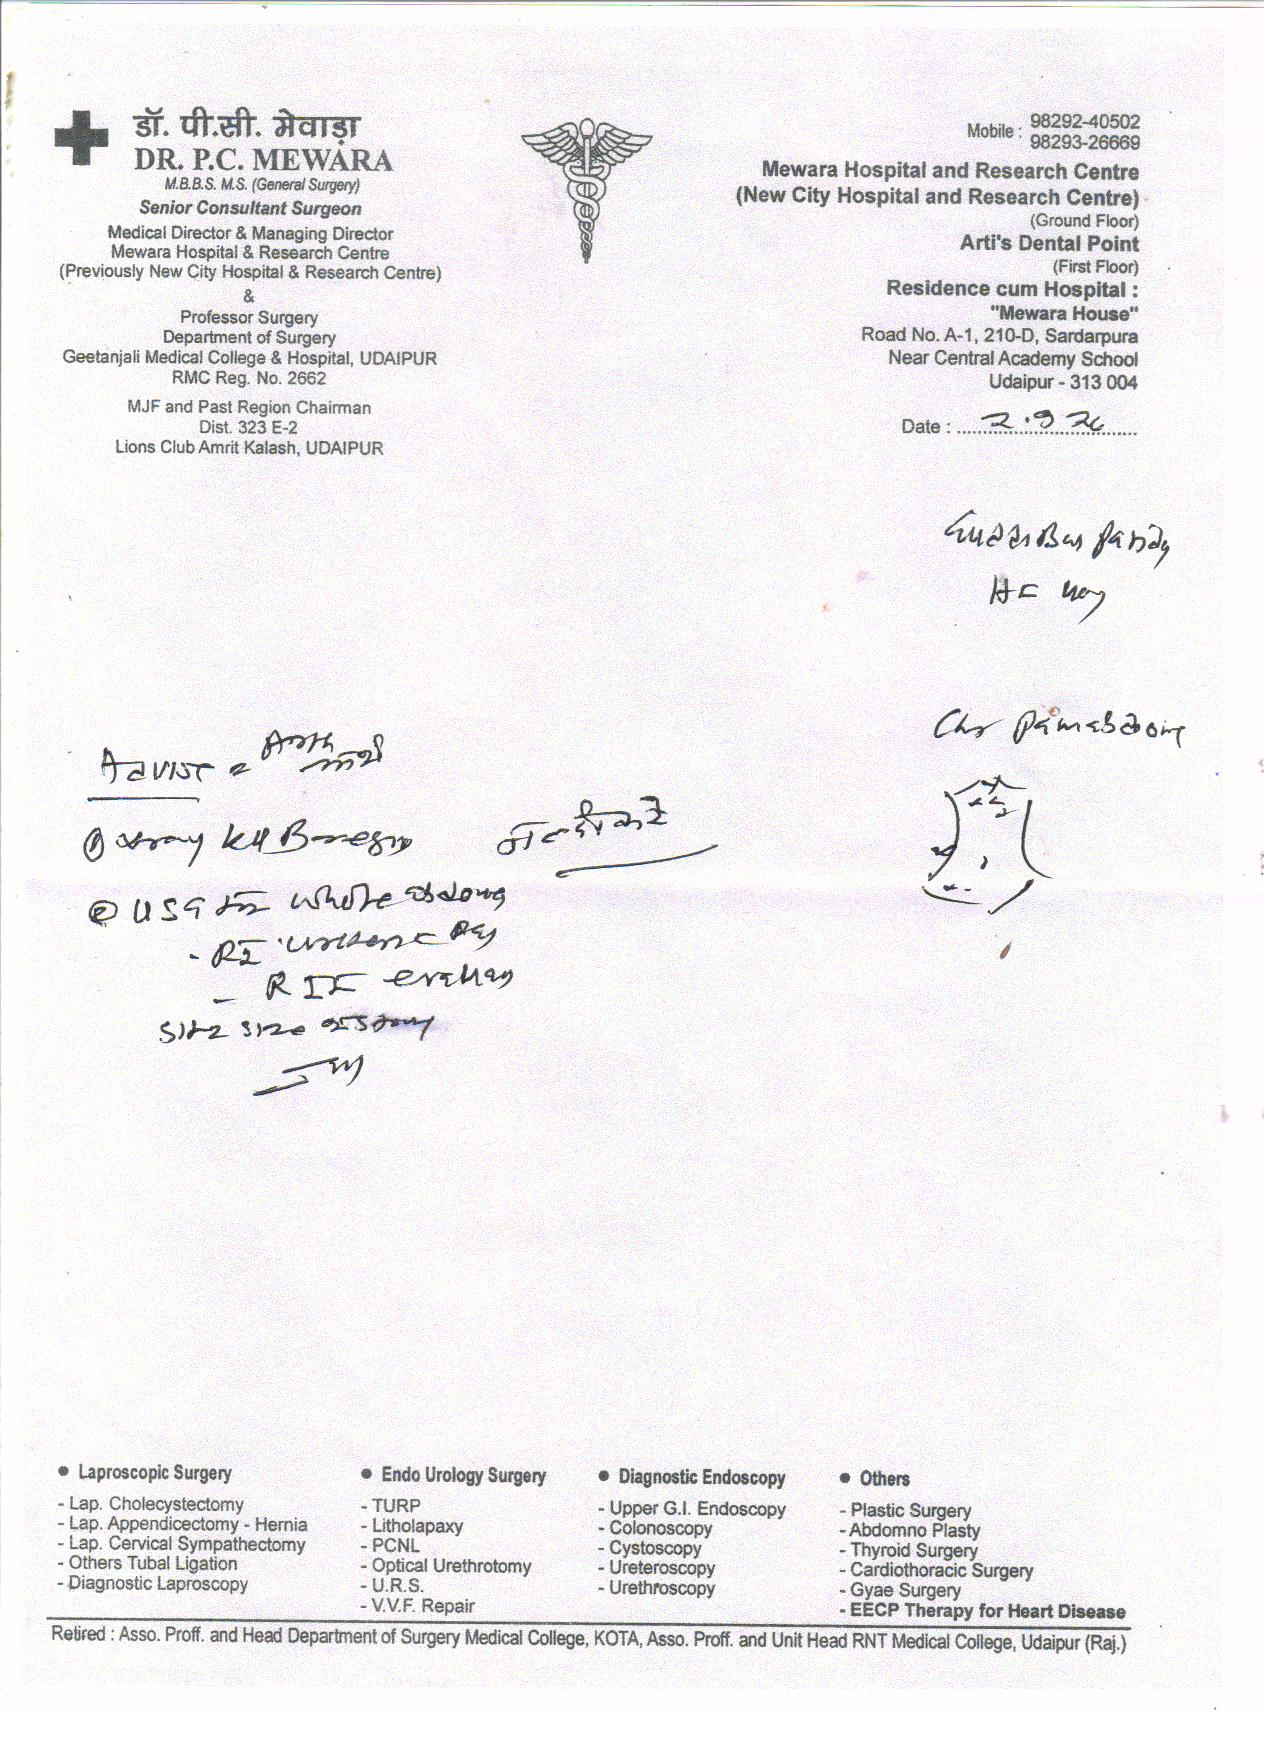 डॉ. पी.सी. मेवाड़ा
DR. P.C. MEWARA
M.B.B.S. M.S. (General Surgery)
Senior Consultant Surgeon
Medical Director & Managing Director
Mewara Hospital & Research Centre
(Previously New City Hospital & Research Centre)
&
Professor Surgery
Department of Surgery
Geetanjali Medical College & Hospital, UDAIPUR
RMC Reg. No. 2662
MJF and Past Region Chairman
Dist. 323 E-2
Lions Club Amrit Kalash, UDAIPUR
Mobile : 98292-40502
98293-26669
Mewara Hospital and Research Centre
(New City Hospital and Research Centre)
(Ground Floor)
Arti's Dental Point
(First Floor)
Residence cum Hospital :
"Mewara House"
Road No. A-1, 210-D, Sardarpura
Near Central Academy School
Udaipur - 313 004
Date :
Advise
USG whole
- RI
- RIF
size
• Laproscopic Surgery
- Lap. Cholecystectomy
- Lap. Appendicectomy - Hernia
- Lap. Cervical Sympathectomy
- Others Tubal Ligation
- Diagnostic Laproscopy
• Endo Urology Surgery
- TURP
- Litholapaxy
- PCNL
- Optical Urethrotomy
- U.R.S.
- V.V.F. Repair
• Diagnostic Endoscopy
- Upper G.I. Endoscopy
- Colonoscopy
- Cystoscopy
- Ureteroscopy
- Urethroscopy
• Others
- Plastic Surgery
- Abdomno Plasty
- Thyroid Surgery
- Cardiothoracic Surgery
- Gyae Surgery
- EECP Therapy for Heart Disease
Retired : Asso. Proff. and Head Department of Surgery Medical College, KOTA, Asso. Proff. and Unit Head RNT Medical College, Udaipur (Raj.)